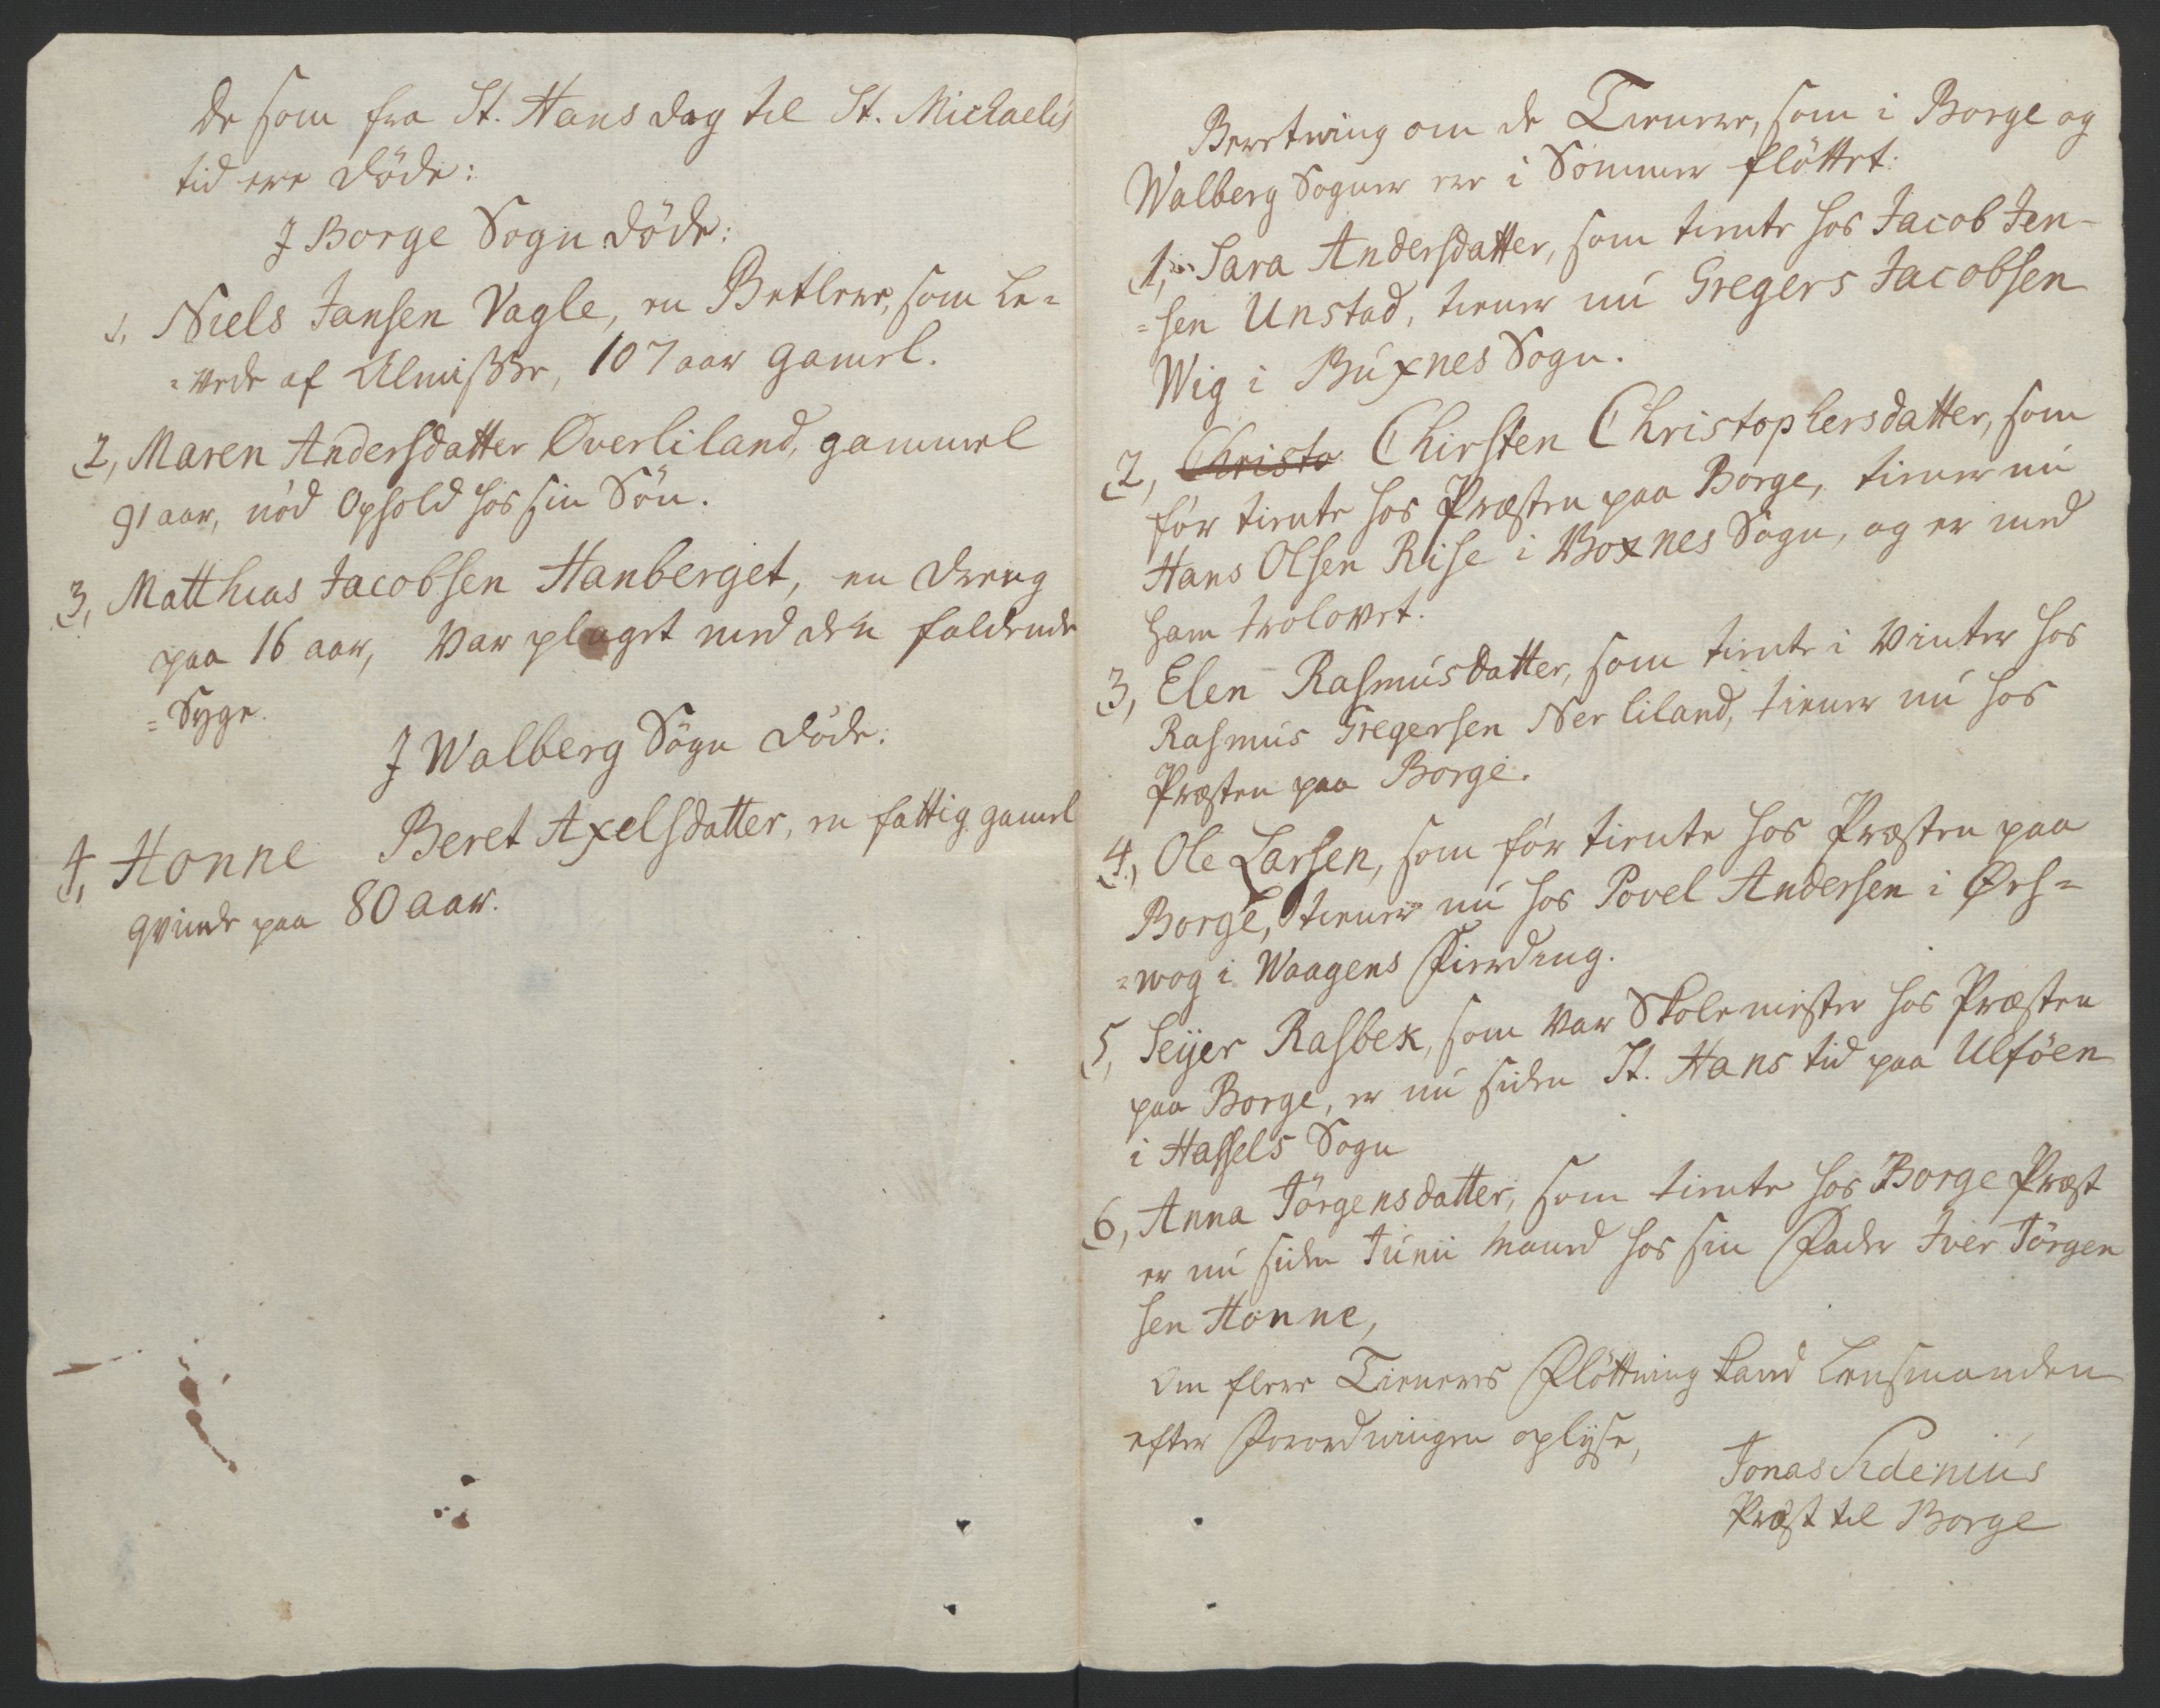 De som fra St. Hans dag til St. Michaelis
tid ere döde:
J Borge Sogn döde:
1, Niels Jansen Vagle, en Betlere, som le=
=vede af Almisse, 107 aar gamel.
2, Maren Andersdatter Overliland, gammel
91 aar, nöd Ophold hos sin Sön.
3, Matthias Jacobsen Hanberget, en dreng
paa 16 aar, var plaget med den faldende
=Syge.
J Walberg Sogn döde.
4, Honne Beret Axelsdatter, en fattig gamel
qvinde paa 80 aar.
Beretning om de Tienere, som i Borge og
Walberg Sogner ere i Sommer flöttet:
1, Sara Andersdatter, som tiente hos Jacob Jen-
=sen Unstad, tiener nu Gregers Jacobsen
Wig i Buxnes Sogn.
2, Christo Chirsten Christophersdatter, som
för tiente hos Præsten paa Borge, tiener nu
Hans Olsen Rise i Boxnes Sogn, og er med
ham trolovet.
3, Elen Rasmusdatter, som tiente i Vinter hos
Rasmus Gregersen Nerliland, tiener nu hos
Præsten paa Borge.
4, Ole Larsen, som för tiente hos Præsten paa
Borge, tiener nu hos Povel Andersen i Örs=
=wog i Waagens Fierding.
5, Seyer Rasbek, som var Skolemester hos Præsten
paa Borge, er nu siden St. Hans tid paa Ulföen
i Hassels Sogn
6, Anna Jörgensdatter, som tiente hos Borge Præst
er nu siden Junii Maaned hos sin Fader Iver Jörgen
sen Honne,
Om flere Tieneres Flöttning kand Lensmanden
efter Forordningen oplyse,
Jonas Sidenius
Præst til Borge